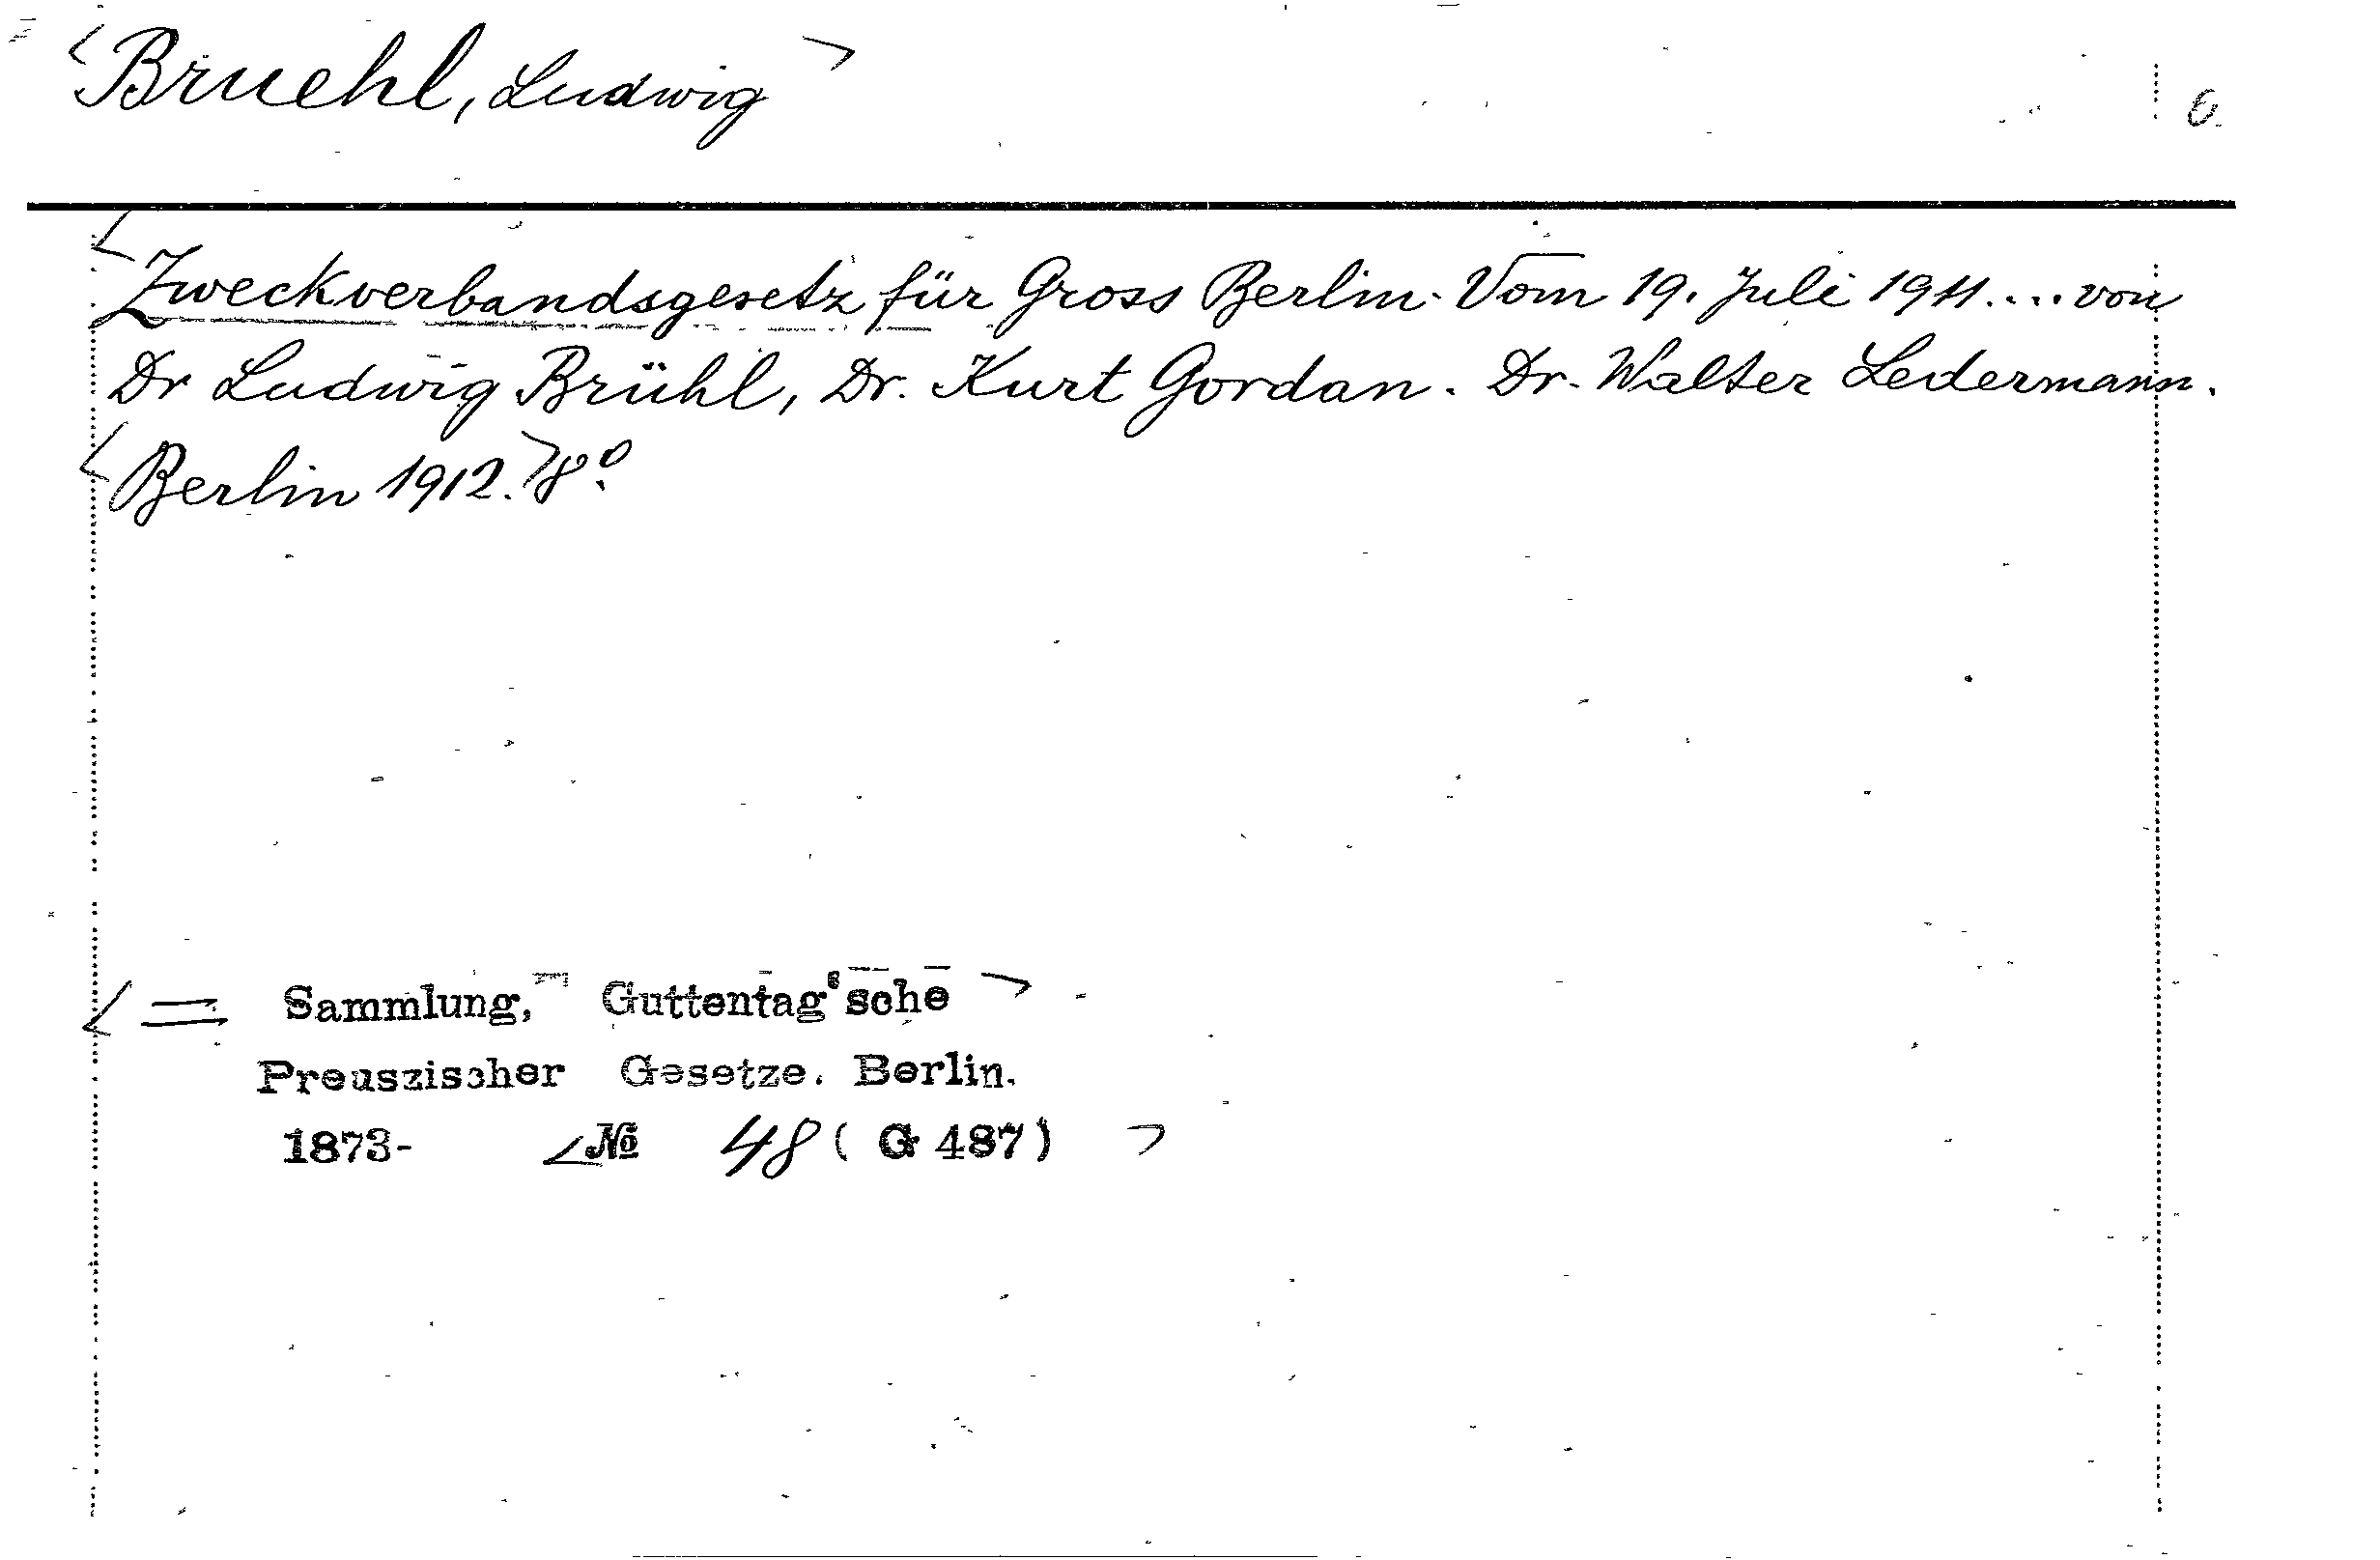 <Bruehl, Ludwig> 6
<Zweckverbandsgesetz für Gross Berlin. Vom 19. Juli 1911.... von
Dr Ludwig Brühl, Dr. Kurt Gordan. Dr. Walter Ledermann.
<Berlin 1912.>8º.
<= Sammlung, Guttentag'sche>
Preuszischer Gesetze. Berlin.
1873- <№ 48 (G 487)>